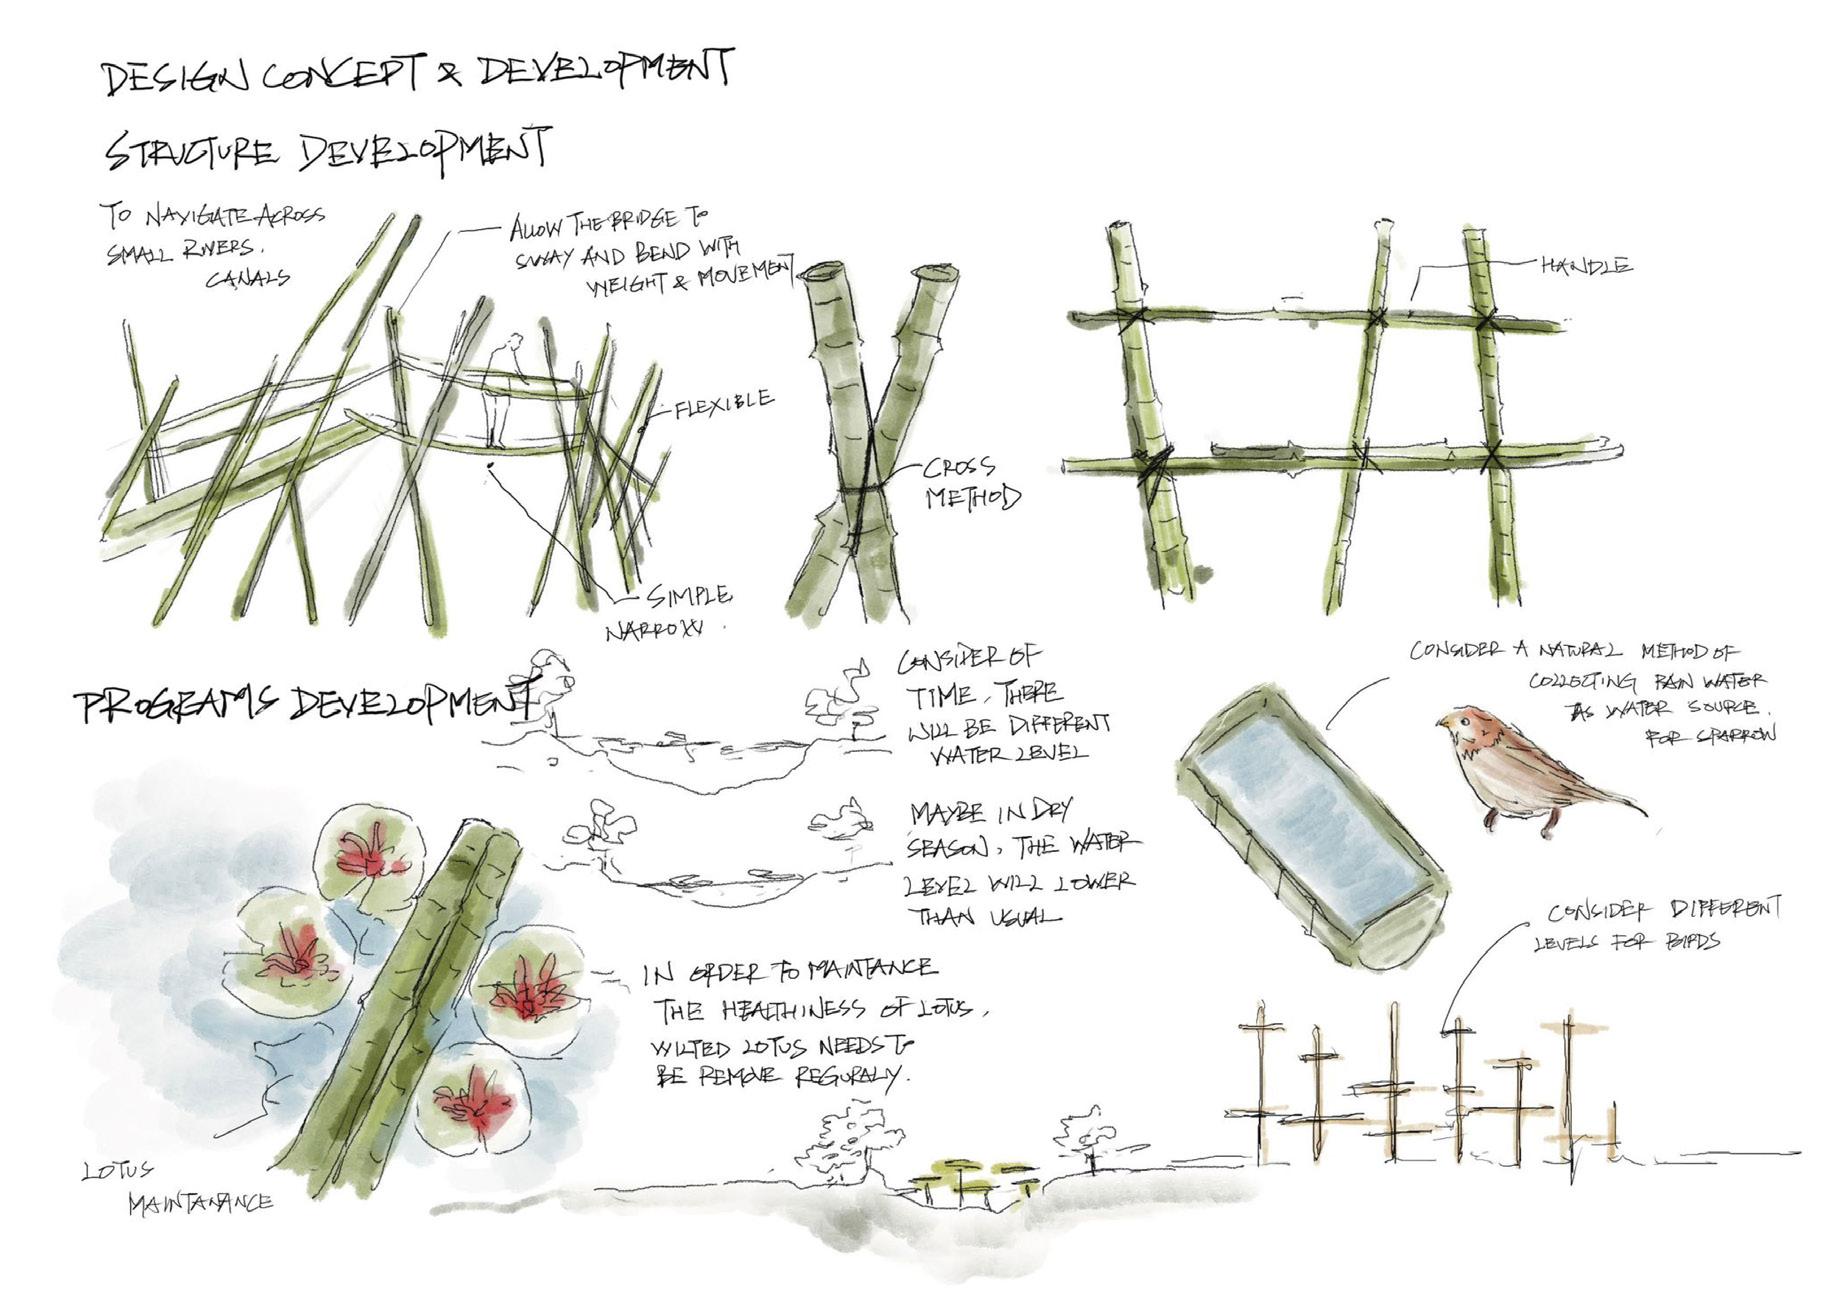 DESIGN CONCEPT & DEVELOPMENT
STRUCTURE DEVELOPMENT
TO NAVIGATE ACROSS
SMALL RIVERS.
CANALS
ALLOW THE BRIDGE TO
SWAY AND BEND WITH
WEIGHT & MOVEMENT
FLEXIBLE
SIMPLE
NARROW.
CROSS
METHOD
HANDLE
PROGRAMS DEVELOPMENT
CONSIDER OF
TIME, THERE
WILL BE DIFFERENT
WATER LEVEL
MAYBE IN DRY
SEASON, THE WATER
LEVEL WILL LOWER
THAN USUAL
IN ORDER TO MAINTANCE
THE HEALTHINESS OF LOTUS,
WILTED LOTUS NEEDS TO
BE REMOVE REGURALY.
LOTUS
MAINTANANCE
CONSIDER A NATURAL METHOD OF
COLLECTING RAIN WATER
AS WATER SOURCE.
FOR SPARROW
CONSIDER DIFFERENT
LEVELS FOR BIRDS